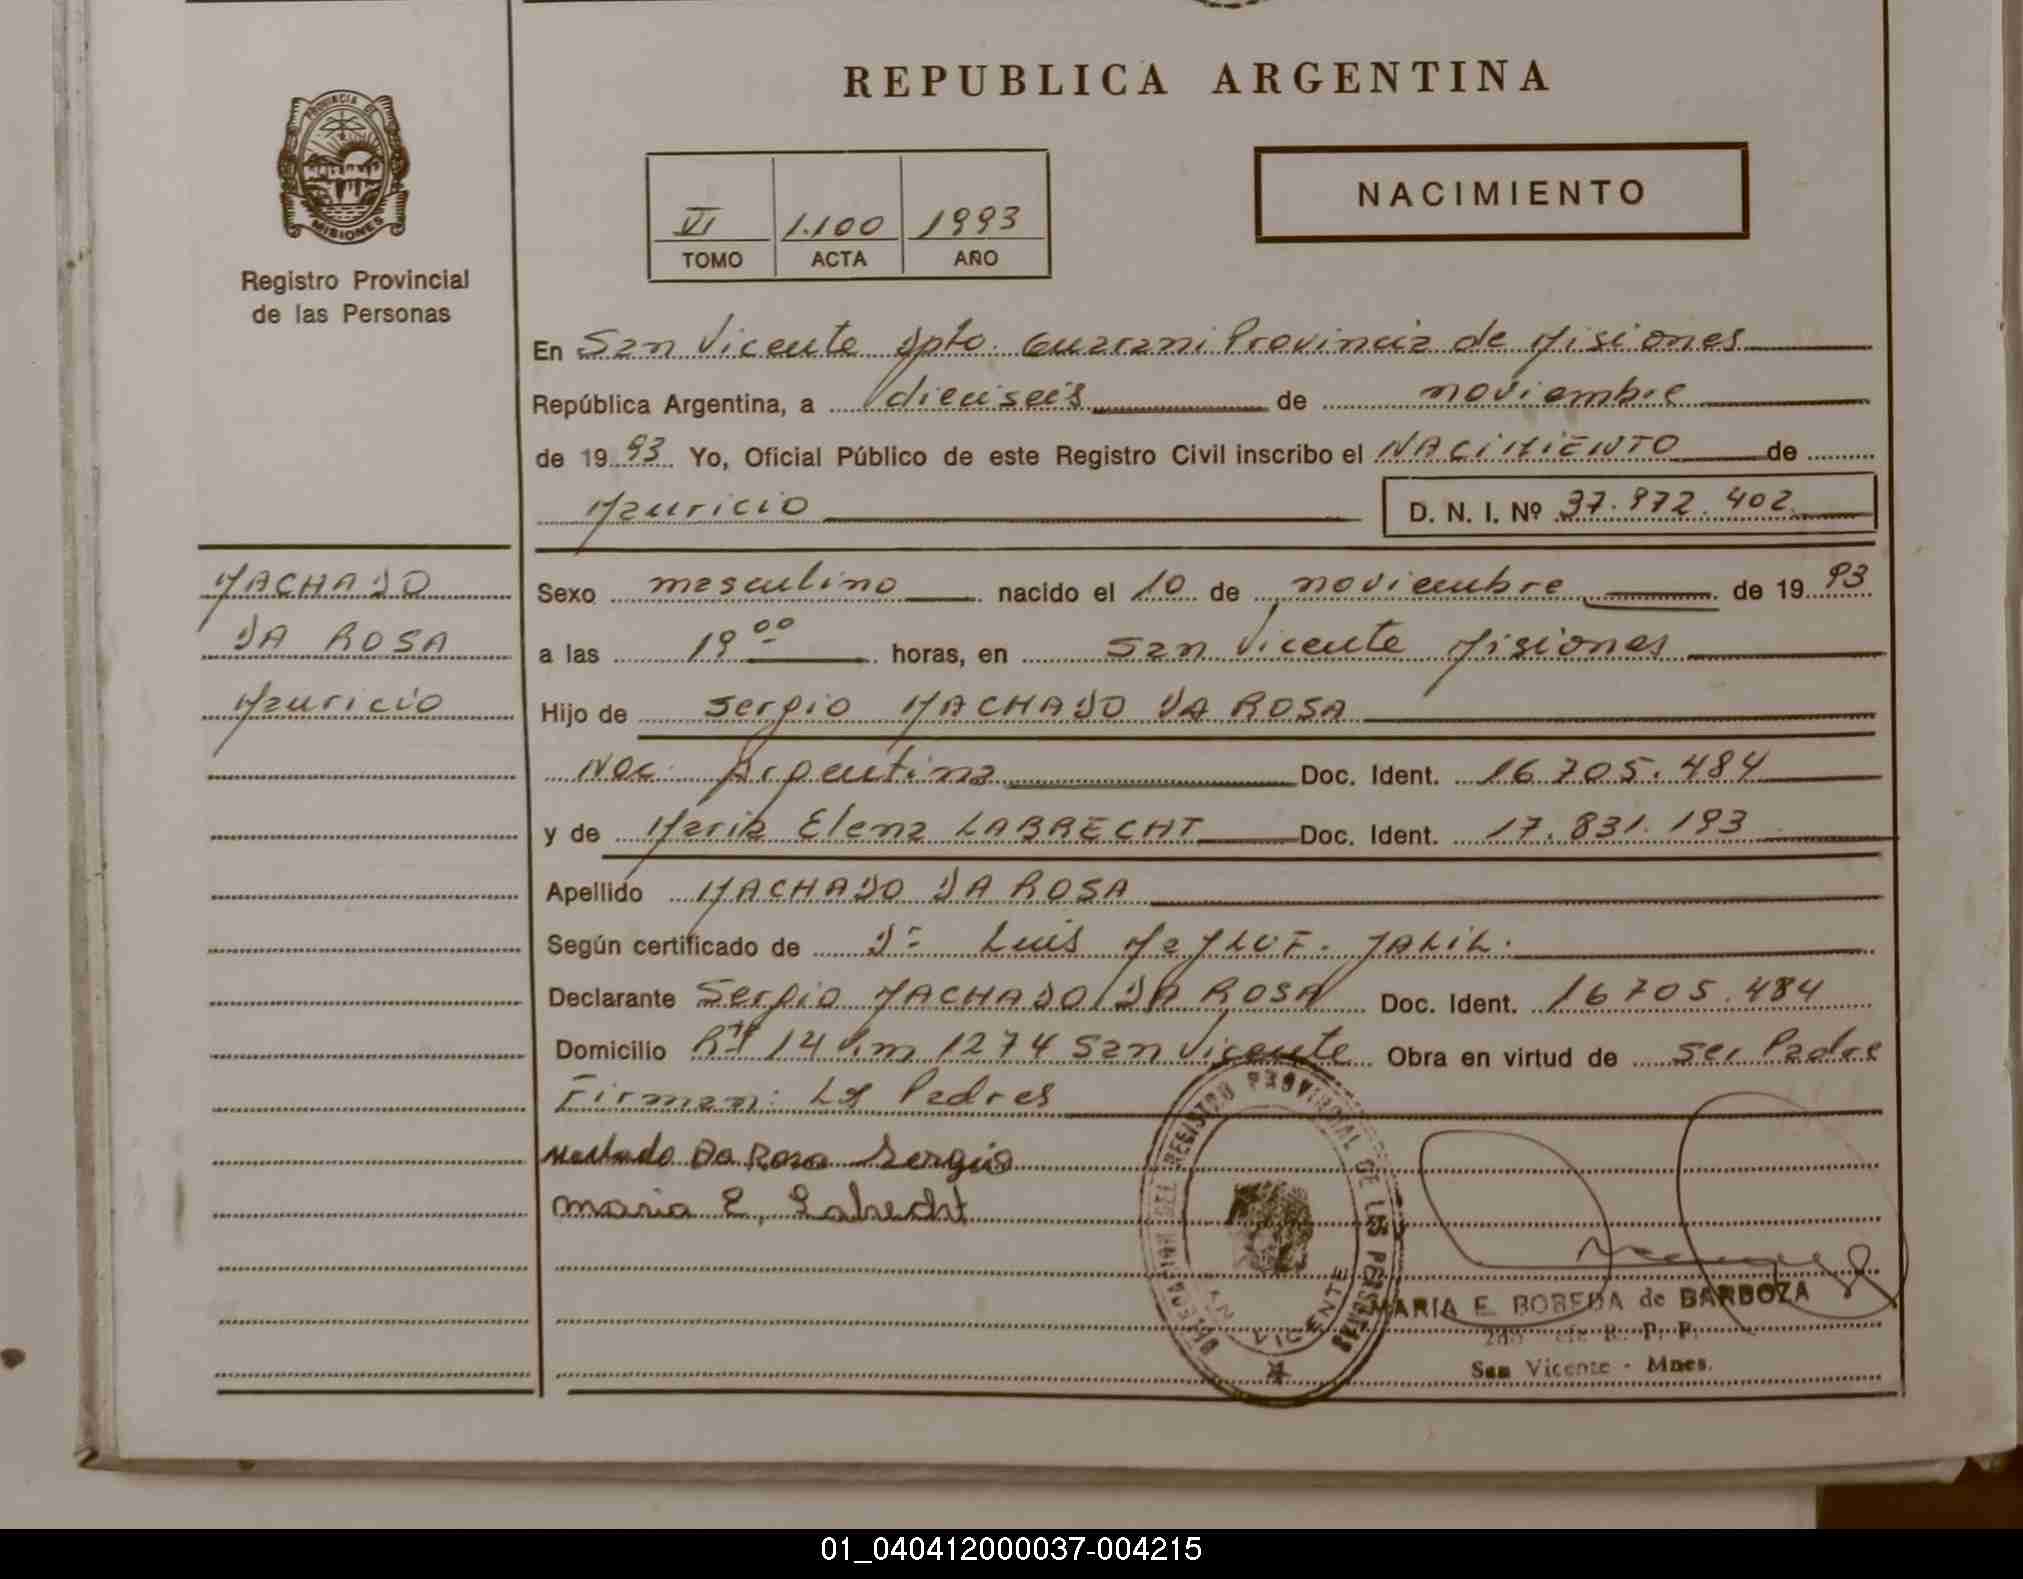 REPUBLICA ARGENTINA
PROVINCIA DE
MISIONES
Registro Provincial
de las Personas
NACIMIENTO
VI 1.100 1993
TOMO ACTA AÑO
En San Vicente Dpto. Guarani Provincia de Misiones
República Argentina, a dieciseis de noviembre
de 1993 Yo, Oficial Público de este Registro Civil inscribo el NACIMIENTO de
Mauricio D. N. I. Nº 37.972.402
MACHADO
DA ROSA
Mauricio
Sexo masculino nacido el 10 de noviembre de 1993
a las 19 00 horas, en San Vicente Misiones
Hijo de Sergio MACHADO DA ROSA
Nac. Argentina Doc. Ident. 16.705.484
y de Maria Elena LABRECHT Doc. Ident. 17.831.193
Apellido MACHADO DA ROSA
Según certificado de Dr Luis JALIL.
Declarante Sergio MACHADO DA ROSA Doc. Ident. 16705.484
Domicilio Rta 14 Km 1274 San Vicente Obra en virtud de ser Padre
Firman: Los Padres
Machado Da Rosa Sergio
Maria E. Labrecht
DELEGACION DEL REGISTRO PROVINCIAL DE LAS PERSONAS
SAN VICENTE
MARIA E. BOBEDA de BARBOZA
R. P. P.
San Vicente - Mnes.
01_040412000037-004215